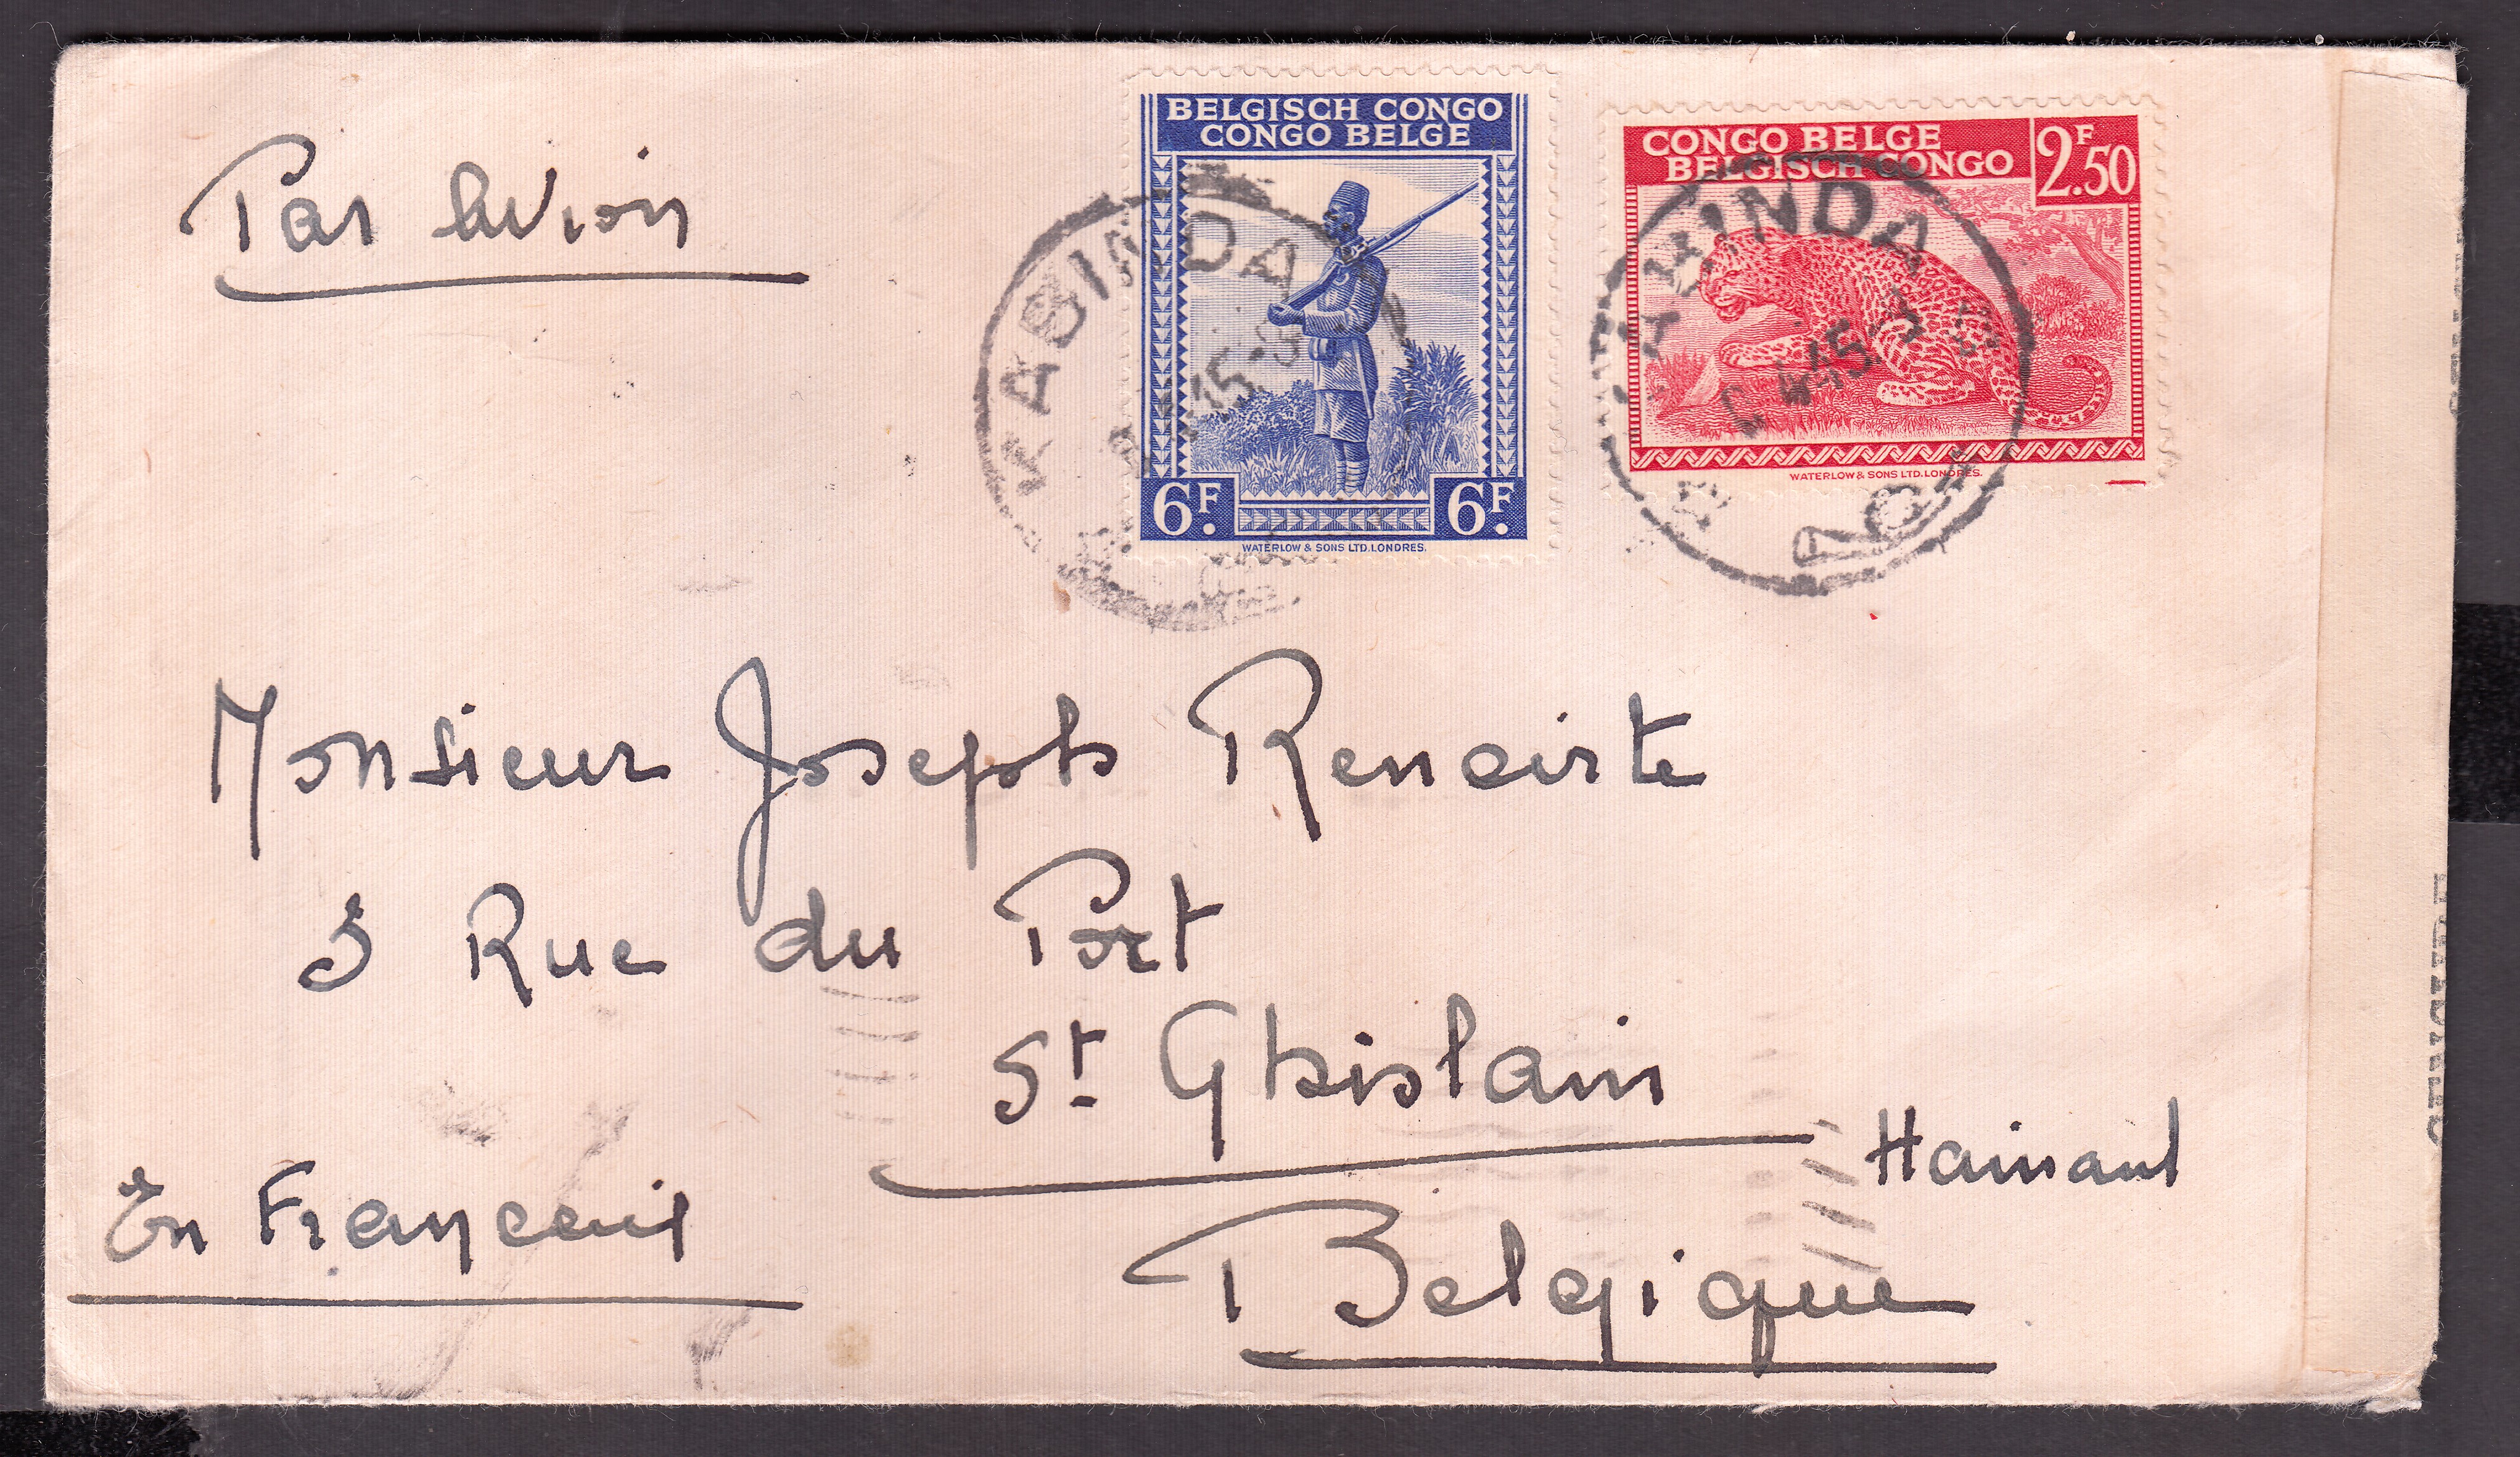 Par Avion
BELGISCH CONGO
CONGO BELGE
6F.
6F.
WATERLOW & SONS LTD. LONDRES.
CONGO BELGE
BELGISCH CONGO
2F.50
WATERLOW & SONS LTD. LONDRES.
KABINDA
KABINDA
Monsieur Joseph Renoirte
3 Rue du Port
St Ghislain
Hainaut
En Français
Belgique